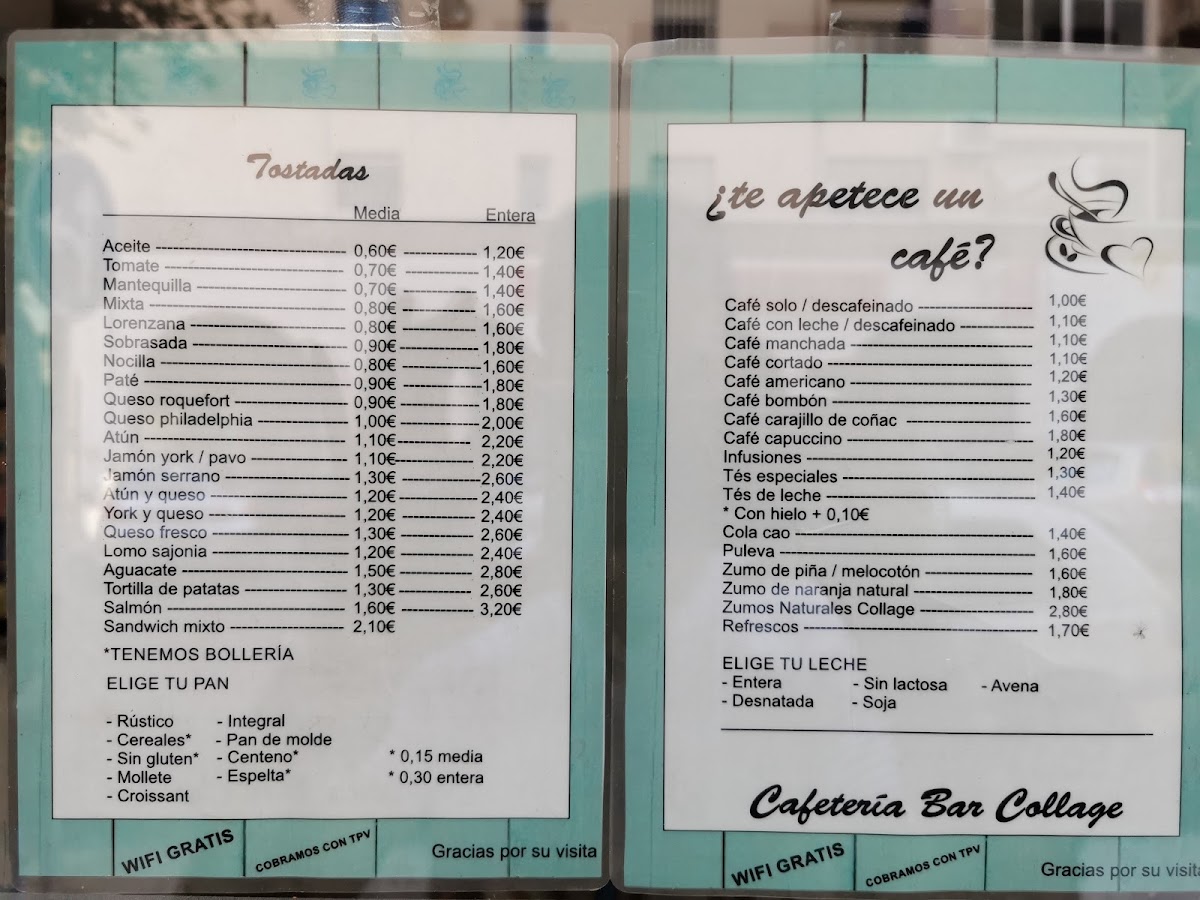 Tostadas
Media Entera
Aceite 0,60€ 1,20€
Tomate 0,70€ 1,40€
Mantequilla 0,70€ 1,40€
Mixta 0,80€ 1,60€
Lorenzana 0,80€ 1,60€
Sobrasada 0,90€ 1,80€
Nocilla 0,80€ 1,60€
Paté 0,90€ 1,80€
Queso roquefort 0,90€ 1,80€
Queso philadelphia 1,00€ 2,00€
Atún 1,10€ 2,20€
Jamón york / pavo 1,10€ 2,20€
Jamón serrano 1,30€ 2,60€
Atún y queso 1,20€ 2,40€
York y queso 1,20€ 2,40€
Queso fresco 1,30€ 2,60€
Lomo sajonia 1,20€ 2,40€
Aguacate 1,50€ 2,80€
Tortilla de patatas 1,30€ 2,60€
Salmón 1,60€ 3,20€
Sandwich mixto 2,10€
*TENEMOS BOLLERÍA
ELIGE TU PAN
- Rústico - Integral
- Cereales* - Pan de molde
- Sin gluten* - Centeno* * 0,15 media
- Mollete - Espelta* * 0,30 entera
- Croissant
WIFI GRATIS COBRAMOS CON TPV Gracias por su visita
¿te apetece un
café?
Café solo / descafeinado 1,00€
Café con leche / descafeinado 1,10€
Café manchada 1,10€
Café cortado 1,10€
Café americano 1,20€
Café bombón 1,30€
Café carajillo de coñac 1,60€
Café capuccino 1,80€
Infusiones 1,20€
Tés especiales 1,30€
Tés de leche 1,40€
* Con hielo + 0,10€
Cola cao 1,40€
Puleva 1,60€
Zumo de piña / melocotón 1,60€
Zumo de naranja natural 1,80€
Zumos Naturales Collage 2,80€
Refrescos 1,70€
ELIGE TU LECHE
- Entera - Sin lactosa - Avena
- Desnatada - Soja
Cafetería Bar Collage
WIFI GRATIS COBRAMOS CON TPV Gracias por su visita